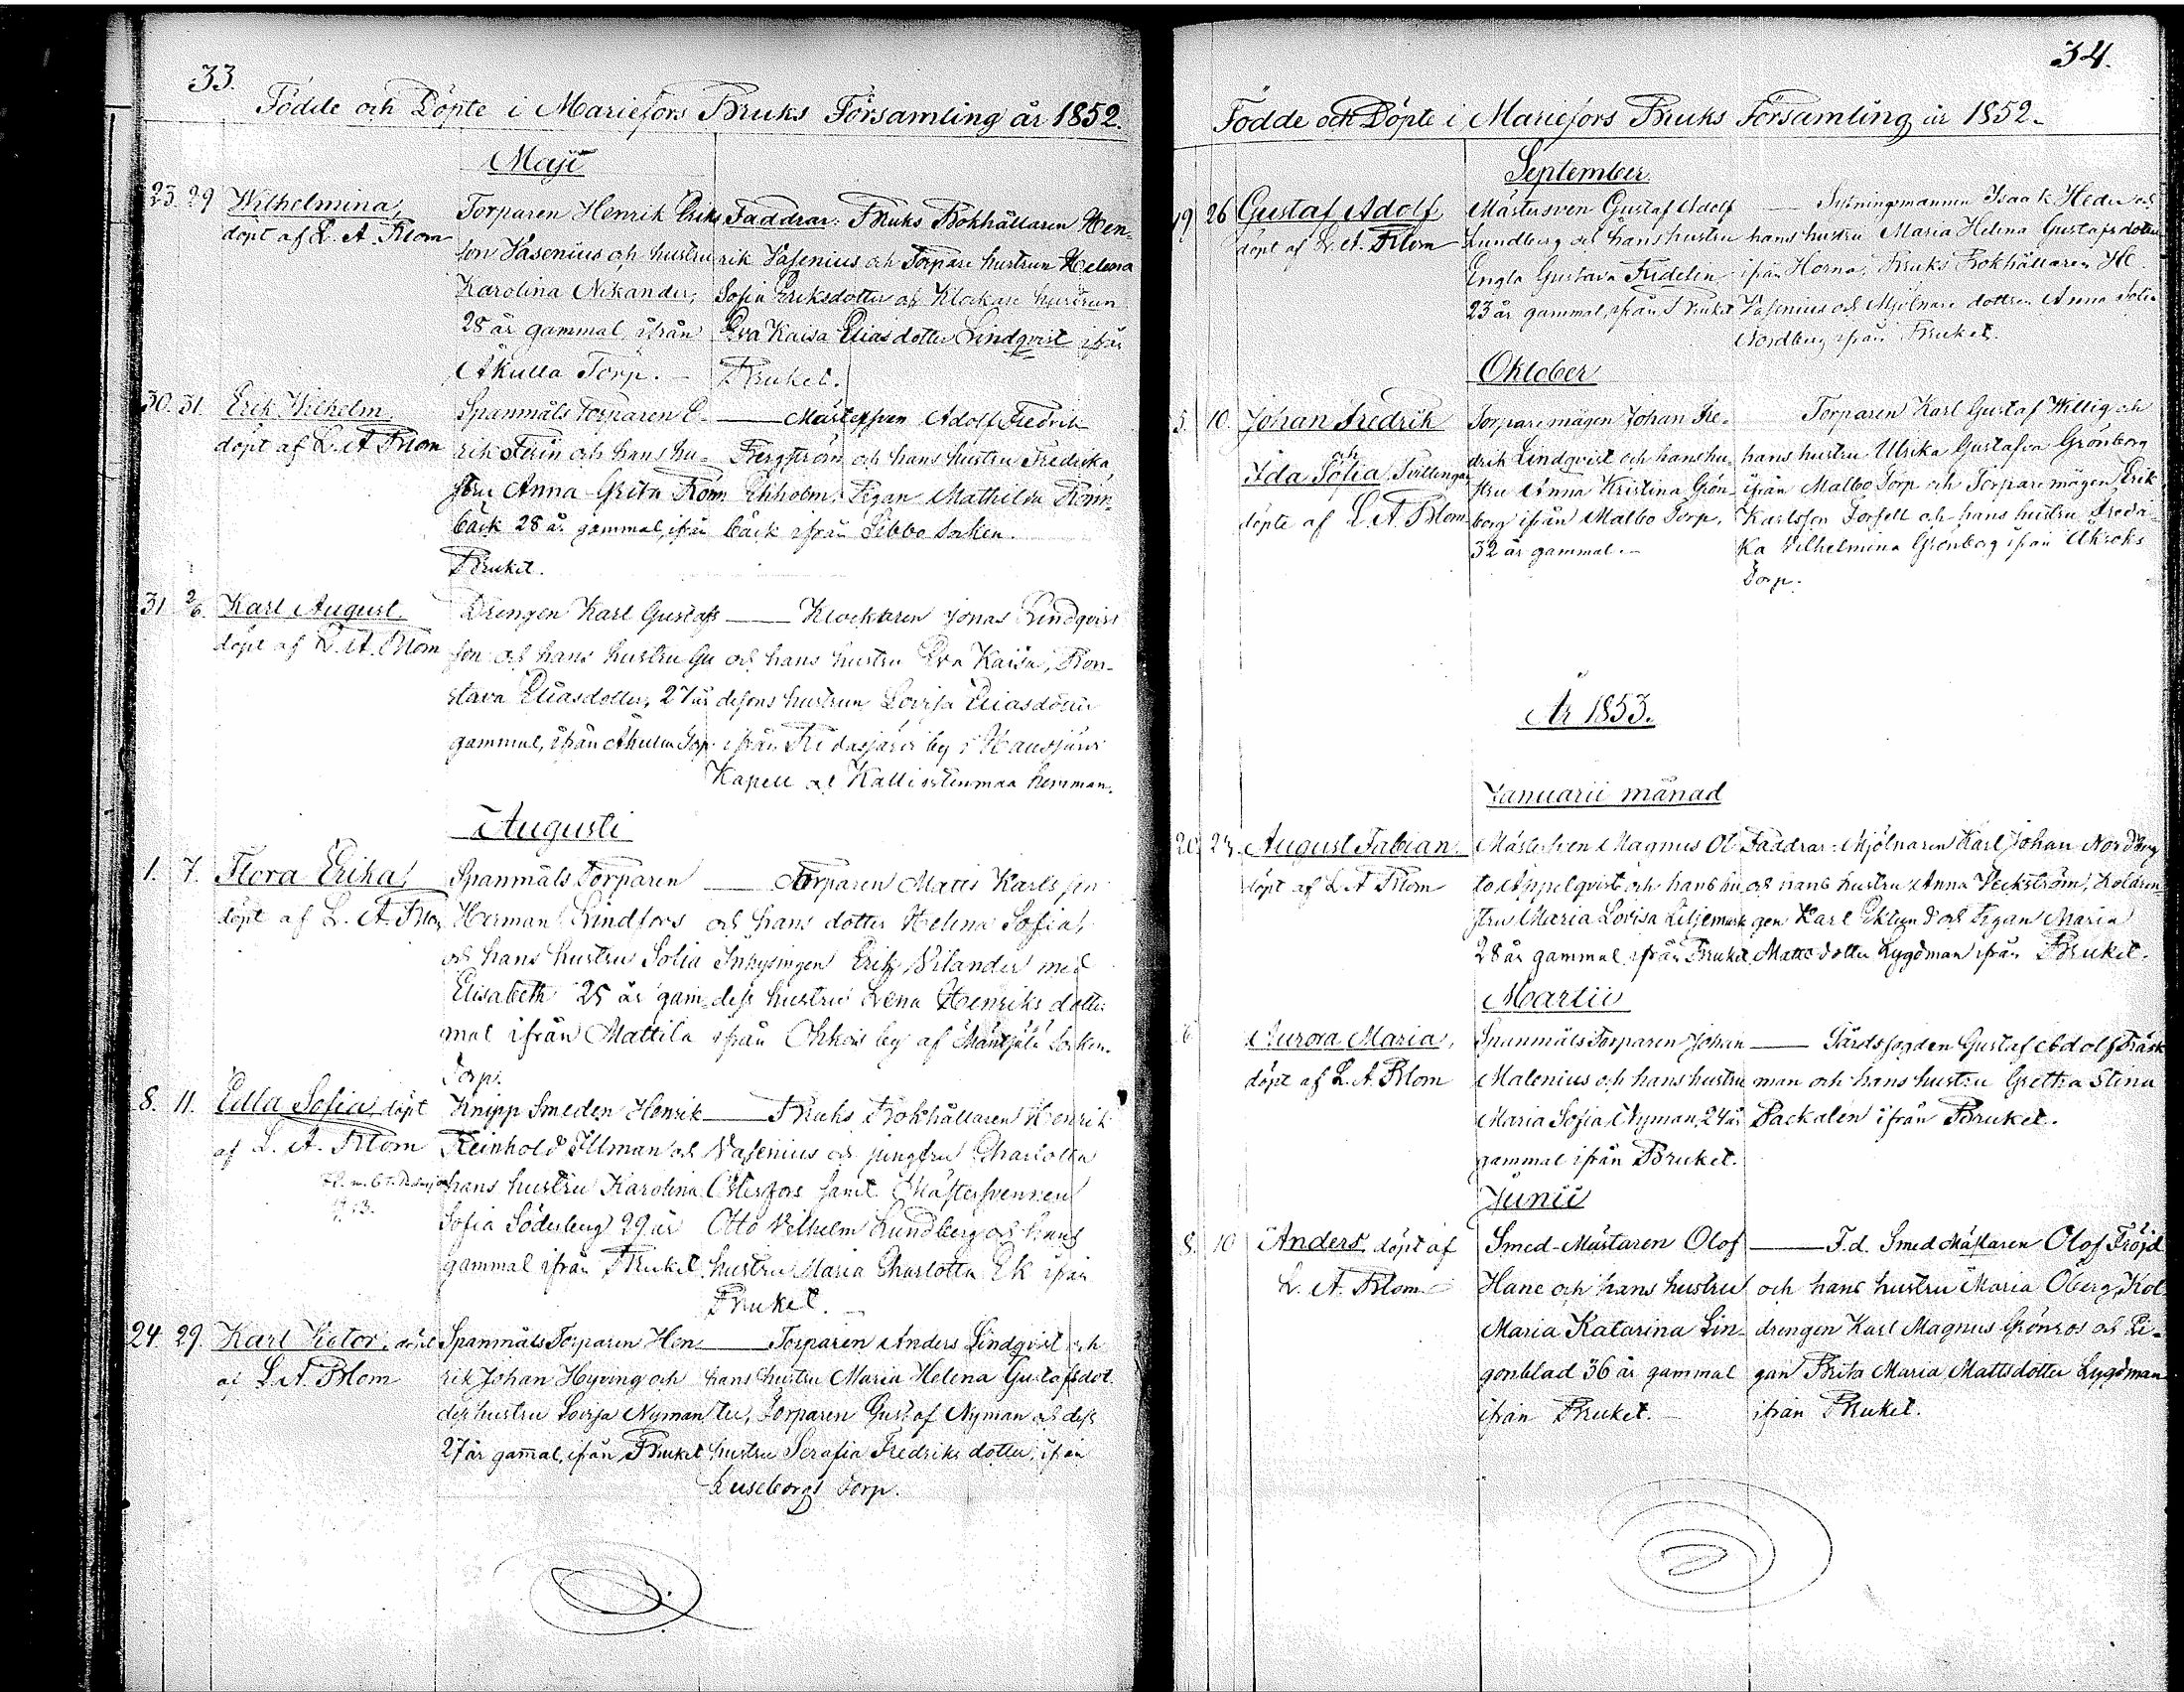 33.
Födde och Döpte i Mariefors Bruks Församling år 1852.
Maji
23. 29 Wilhelmina,
döpt af L. A. Blom
Torparen Henrik Eriks
son Vasenius och hustru
Karolina Nikander,
28 år gammal, ifrån
Åkulla Torp. —
Faddrar: Bruks Bokhållaren Hen=
rik Vasenius och Torpare hustrun Helena
Sofia Eriksdotter och Klockare hustrun
Eva Kaisa Eliasdotter Lindqvist ifrån
Bruket.
30. 31. Erik Wilhelm.
döpt af L. A. Blom
Spanmåls Torparen E-
rik Ferin och hans hu-
stru Anna Greta Rönn
bäck 28 år gammal, ifrån
Bruket.
— Mästersven Adolf Fredrik
Bergström och hans hustru Fredrika
Ekholm, Pigan Mathilda Rönn-
bäck ifrån Sibbo Socken.
31 2/6. Karl August.
döpt af L. A. Blom
Drengen Karl Gustafs
son och hans hustru Gu
stava Eliasdotter, 27 år
gammal, ifrån Åkulla Torp.
— Klockaren Jonas Lindqvist
och hans hustru Eva Kaisa, Bon-
desons hustrun Lovisa Eliasdotter
ifrån Ridasjärvi by i Hausjärvi
Kapell och Kalliostenmaa hemman.
Augusti
1. 7. Flora Erika,
döpt af L. A. Blom
Spanmåls Torparen
Herman Lindfors
och hans hustru Sofia
Elisabeth 25 år gam-
mal ifrån Mattila
Torp.
— Torparen Matts Karlsson
och hans dotter Helena Sofia,
Inhysingen Erik Vilander med
dess hustru Lena Henriks dotter
ifrån Ohkois by af Mäntsälä Socken.
8. 11. Edla Sofia, döpt
af L. A. Blom
Knipp Smeden Henrik
Reinhold Illman och
hans hustru Karolina
Sofia Söderberg 29 år
gammal ifrån Bruket
— Bruks Bokhållaren Henrik
Vasenius och jungfru Charlotta
Östersfors samt Mästersvennen
Otto Vilhelm Lundberg och hans
hustru Maria Charlotta Ek ifrån
Bruket. —
24. 29. Karl Viktor, döpt
af L. A. Blom
Spanmåls Torparen Hen
rik Johan Hyving och
dess hustru Lovisa Nyman
27 år gammal, ifrån Bruket
— Torparen Anders Lindqvist och
hans hustru Maria Helena Gustafsdot
ter, Torparen Gustaf Nyman och dess
hustru Serafia Fredriks dotter, ifrån
Luseborgs Torp.
34.
Födde och Döpte i Mariefors Bruks Församling år 1852.
September
19 26 Gustaf Adolf,
döpt af L. A. Blom
Mästersven Gustaf Adolf
Lundberg och hans hustru
Engla Gustava Fridelin
23 år gammal, ifrån Bruket
— Sytningsmannen Isaak Heder och
hans hustru Maria Helena Gustafsdotter
ifrån Horna, Bruks Bokhållaren H.
Vasenius och Mjölnare dottren Anna Sofia
Nordberg ifrån Bruket.
Oktober
5. 10. Johan Fredrik
och
Ida Sofia, Tvillingar
döpte af L. A. Blom
Torparemågen Johan Fre-
drik Lindqvist och hans hu-
stru Anna Kristina Grön-
borg ifrån Malbo Torp.
32 år gammal. —
Torparen Karl Gustaf Willig och
hans hustru Ulrika Gustafva Grönborg
ifrån Malbo Torp och Torparemågen Erik
Karlsson Forsell och hans hustru Fredri
ka Vilhelmina Grönborg ifrån
Torp.
År 1853.
Januarii månad
20. 23. August Fabian.
döpt af L. A. Blom
Mästersven Magnus Ot
to Appelqvist och hans hu
stru Maria Lovisa Liljemark
28 år gammal ifrån Bruket
Faddrar: Mjölnaren Karl Johan Nordberg
och hans hustru Anna Veckström, Koldren
gen Karl Eklund och Pigan Maria
Matts dotter Lygdman ifrån Bruket.
Martii
6 Aurora Maria,
döpt af L. A. Blom
Spanmåls Torparen Johan
Malenius och hans hustru
Maria Sofia Nyman, 24 år
gammal ifrån Bruket.
— Gårdsfogden Gustaf Adolf Träsk
man och hans hustru Gretha Stina
Backalén ifrån Bruket.
Junii
8. 10 Anders döpt af
L. A. Blom.
Smed-Mästaren Olof
Hane och hans hustru
Maria Katarina Lin-
gonblad 36 år gammal
ifrån Bruket. —
— F.d. Smed Mästaren Olof Fröjd
och hans hustru Maria Öberg, Kol
drengen Karl Magnus Grönros och Pi-
gan Brita Maria Mattsdotter Lygdman
ifrån Bruket.